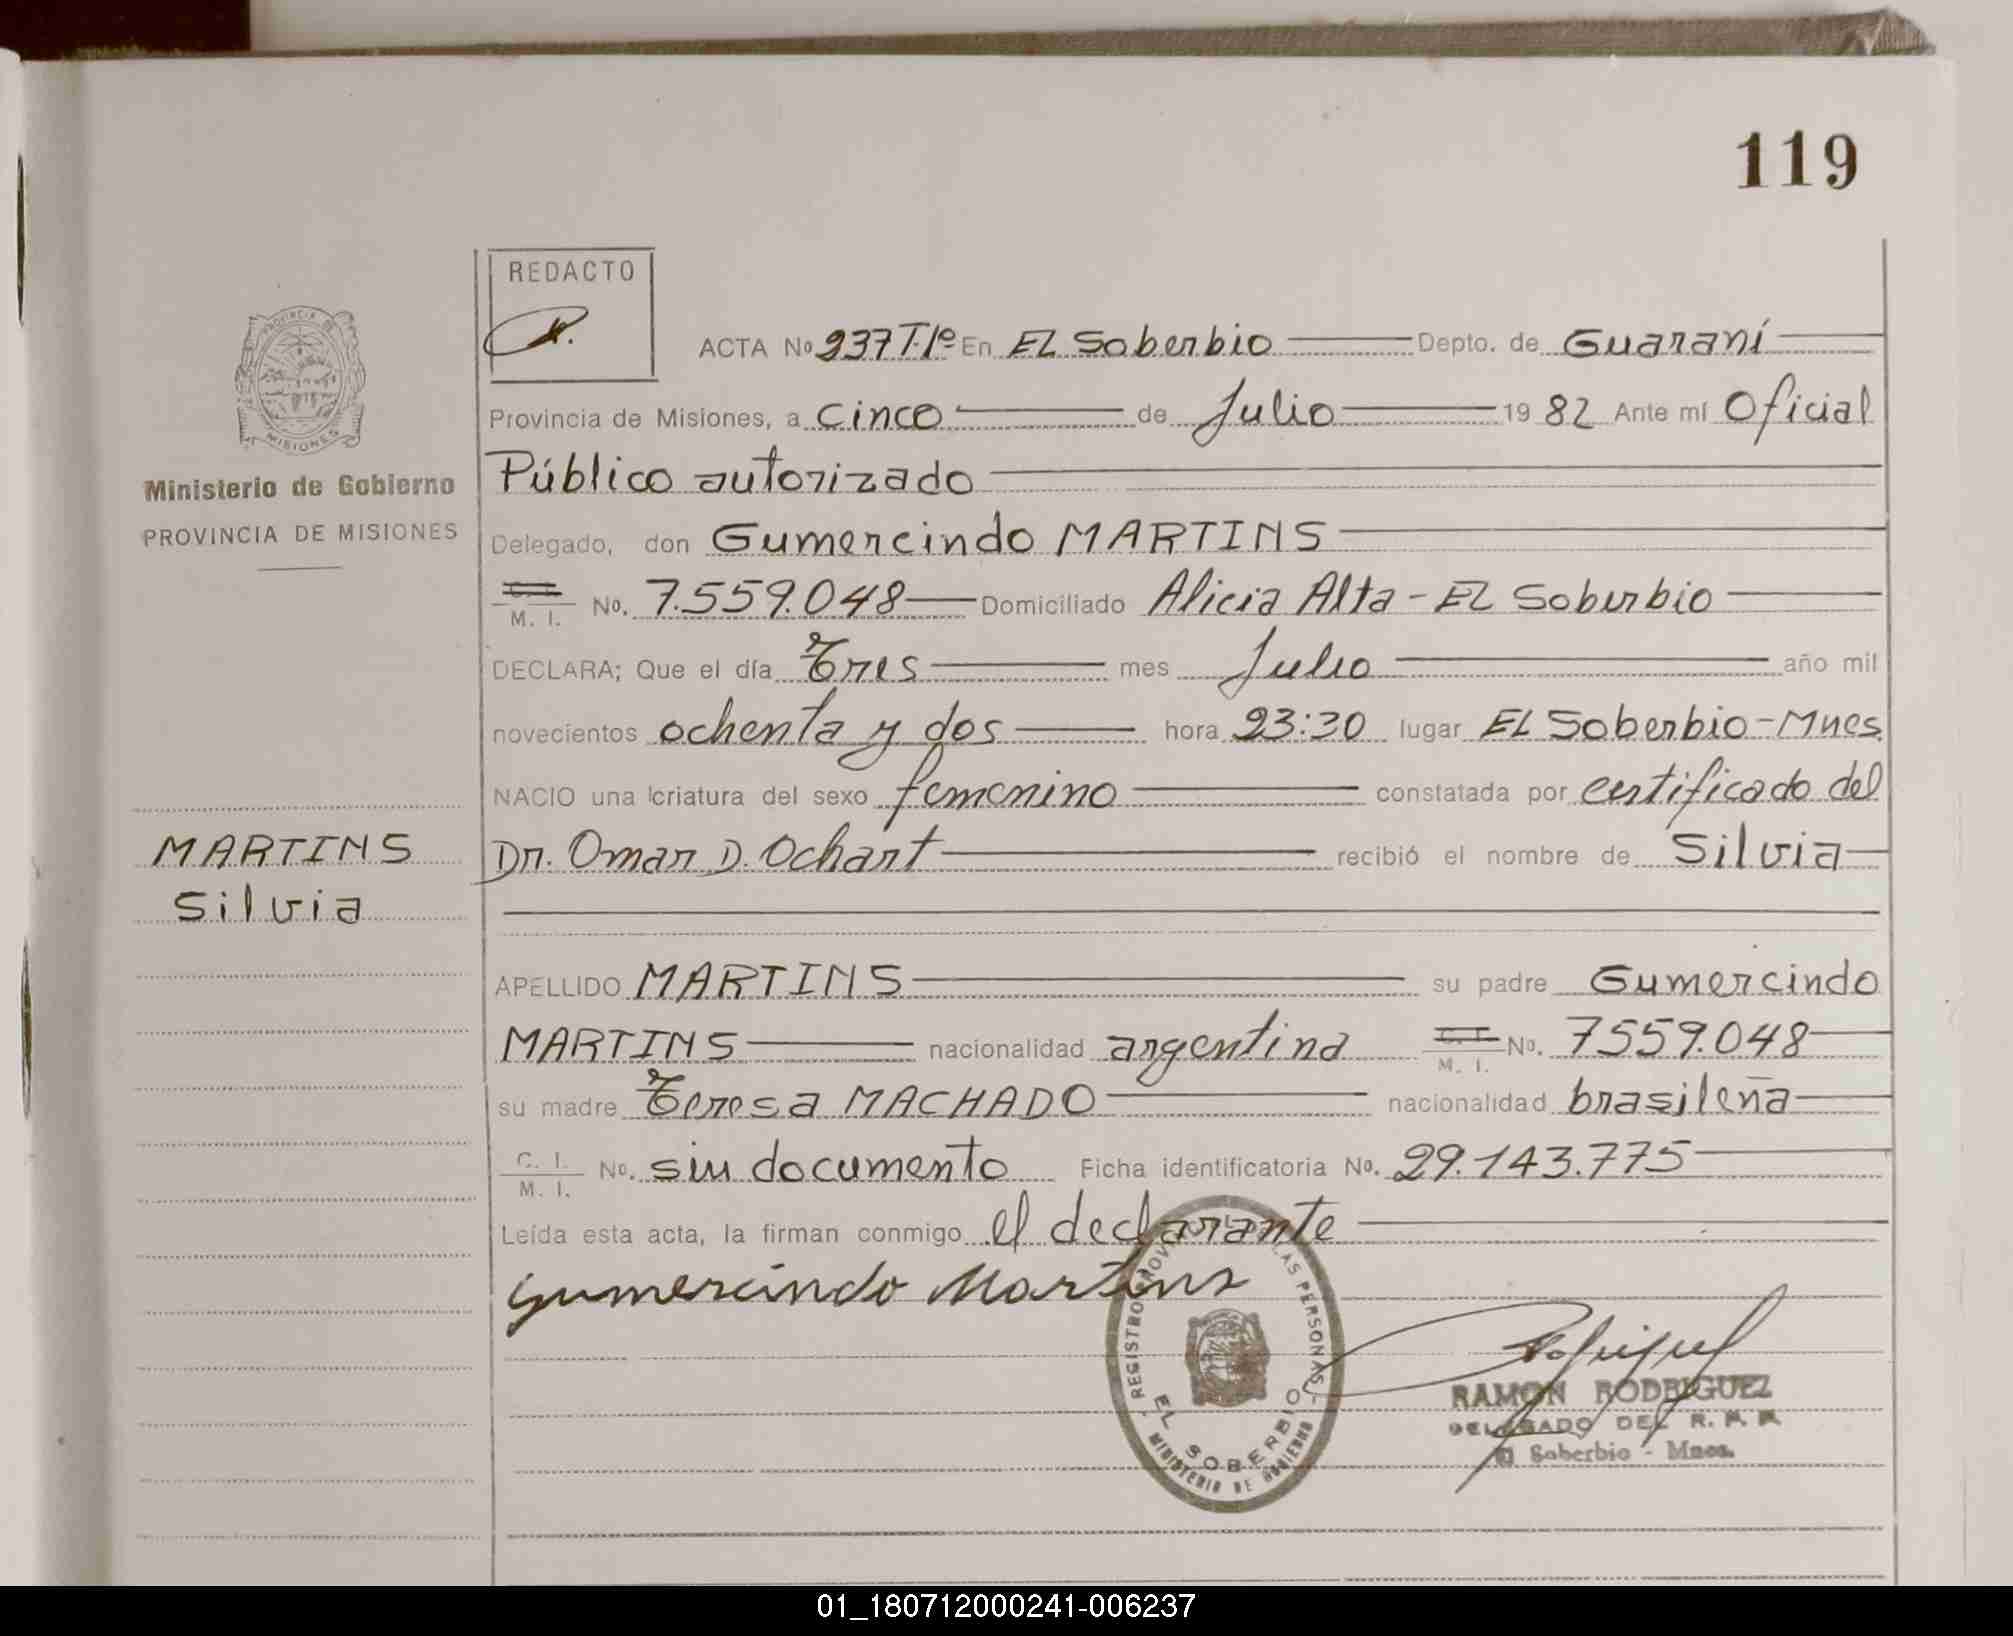 119
REDACTO
PROVINCIA DE
MISIONES
Ministerio de Gobierno
PROVINCIA DE MISIONES
MARTINS
Silvia
ACTA Nº 237 T.1º En EL Soberbio Depto. de Guaraní
Provincia de Misiones, a cinco de Julio 19 82 Ante mí Oficial
Público autorizado
Delegado, don Gumercindo MARTINS
M. I. No. 7.559.048 Domiciliado Alicia Alta - EL Soberbio
DECLARA; Que el día Tres mes Julio año mil
novecientos ochenta y dos hora 23:30 lugar EL Soberbio - Mnes.
NACIO una criatura del sexo femenino constatada por certificado del
Dr. Omar D. Ochart recibió el nombre de Silvia
APELLIDO MARTINS su padre Gumercindo
MARTINS nacionalidad argentina C. I. M. I. No. 7559.048
su madre Teresa MACHADO nacionalidad brasileña
C. I. M. I. No. sin documento Ficha identificatoria No. 29.143.775
Leída esta acta, la firman conmigo el declarante
Gumercindo Martins
REGISTRO PROVINCIAL DE LAS PERSONAS
EL SOBERBIO
MINISTERIO DE GOBIERNO
RAMON RODRIGUEZ
DELEGADO DEL R. P. P.
El Soberbio - Mnes.
01_180712000241-006237